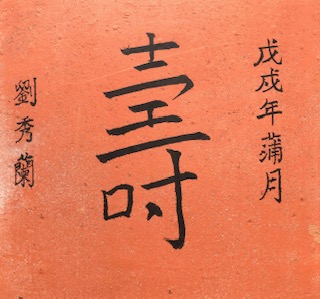 戊戌年蒲月
壽
劉秀蘭